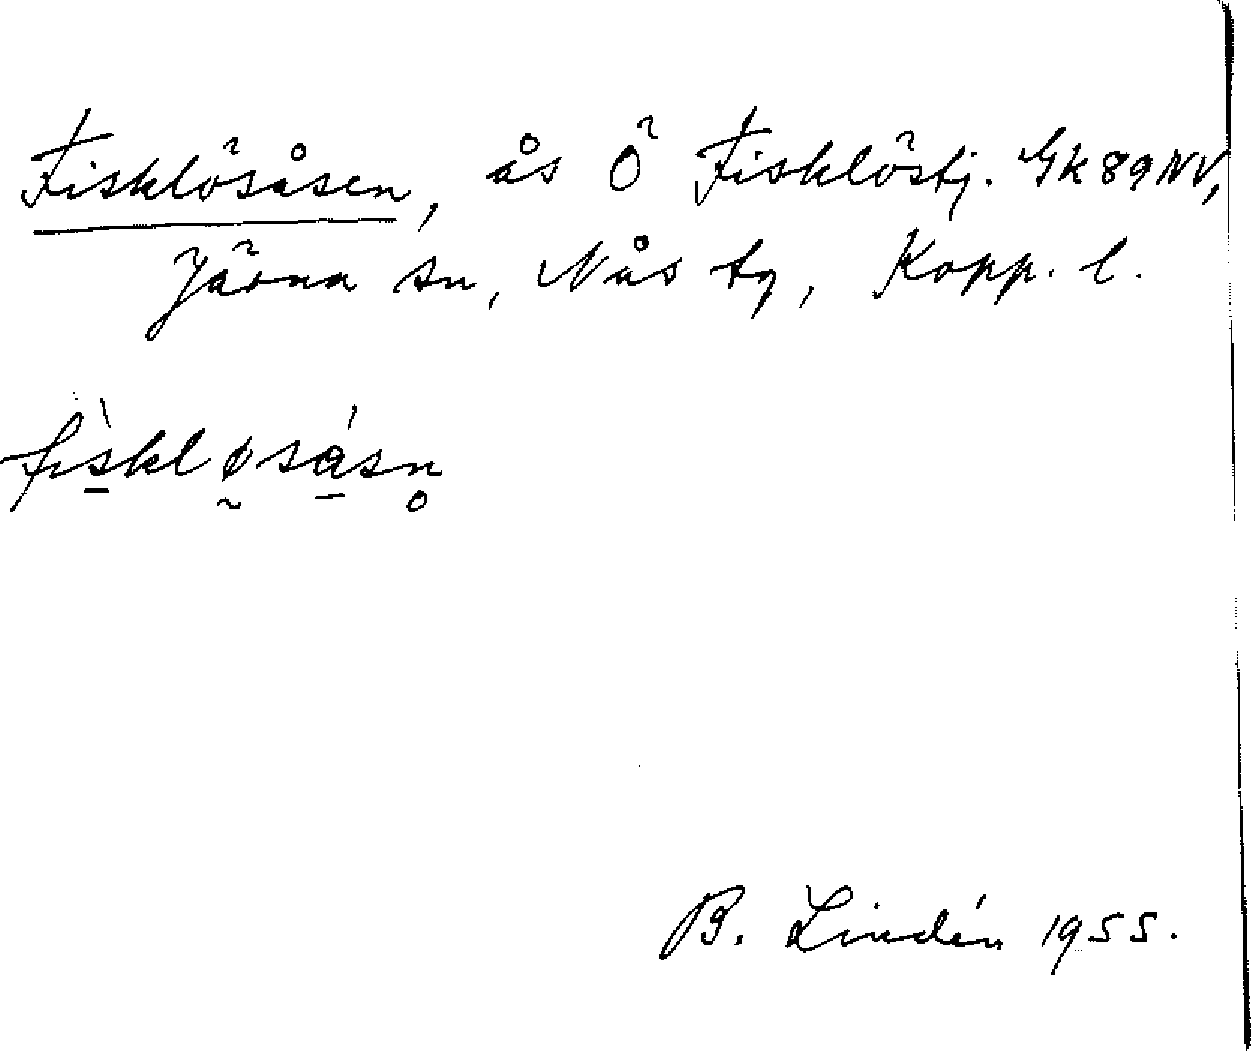 Fisklösåsen, ås Ö Fisklöstj. Gk 89 NV,
Järna sn, Nås tg, Kopp. l.
fìsklø̰sásn̥
B. Lindén 1955.